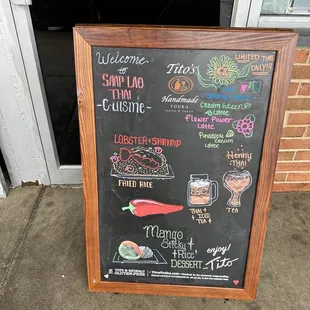 Welcome
to
SAAP LAO
THAI
-Cuisine-
Tito's
Handmade
VODKA
LIMITED TIME
ONLY
CREAM
Latte
Flower Power
Latte
Pineapple
Cream
Latte
LOBSTER & SHRIMP
FRIED RICE
Henny
THAI
TEA
THAI
ICED
TEA
Mango
Sticky
Rice
DESSERT
enjoy!
-Tito